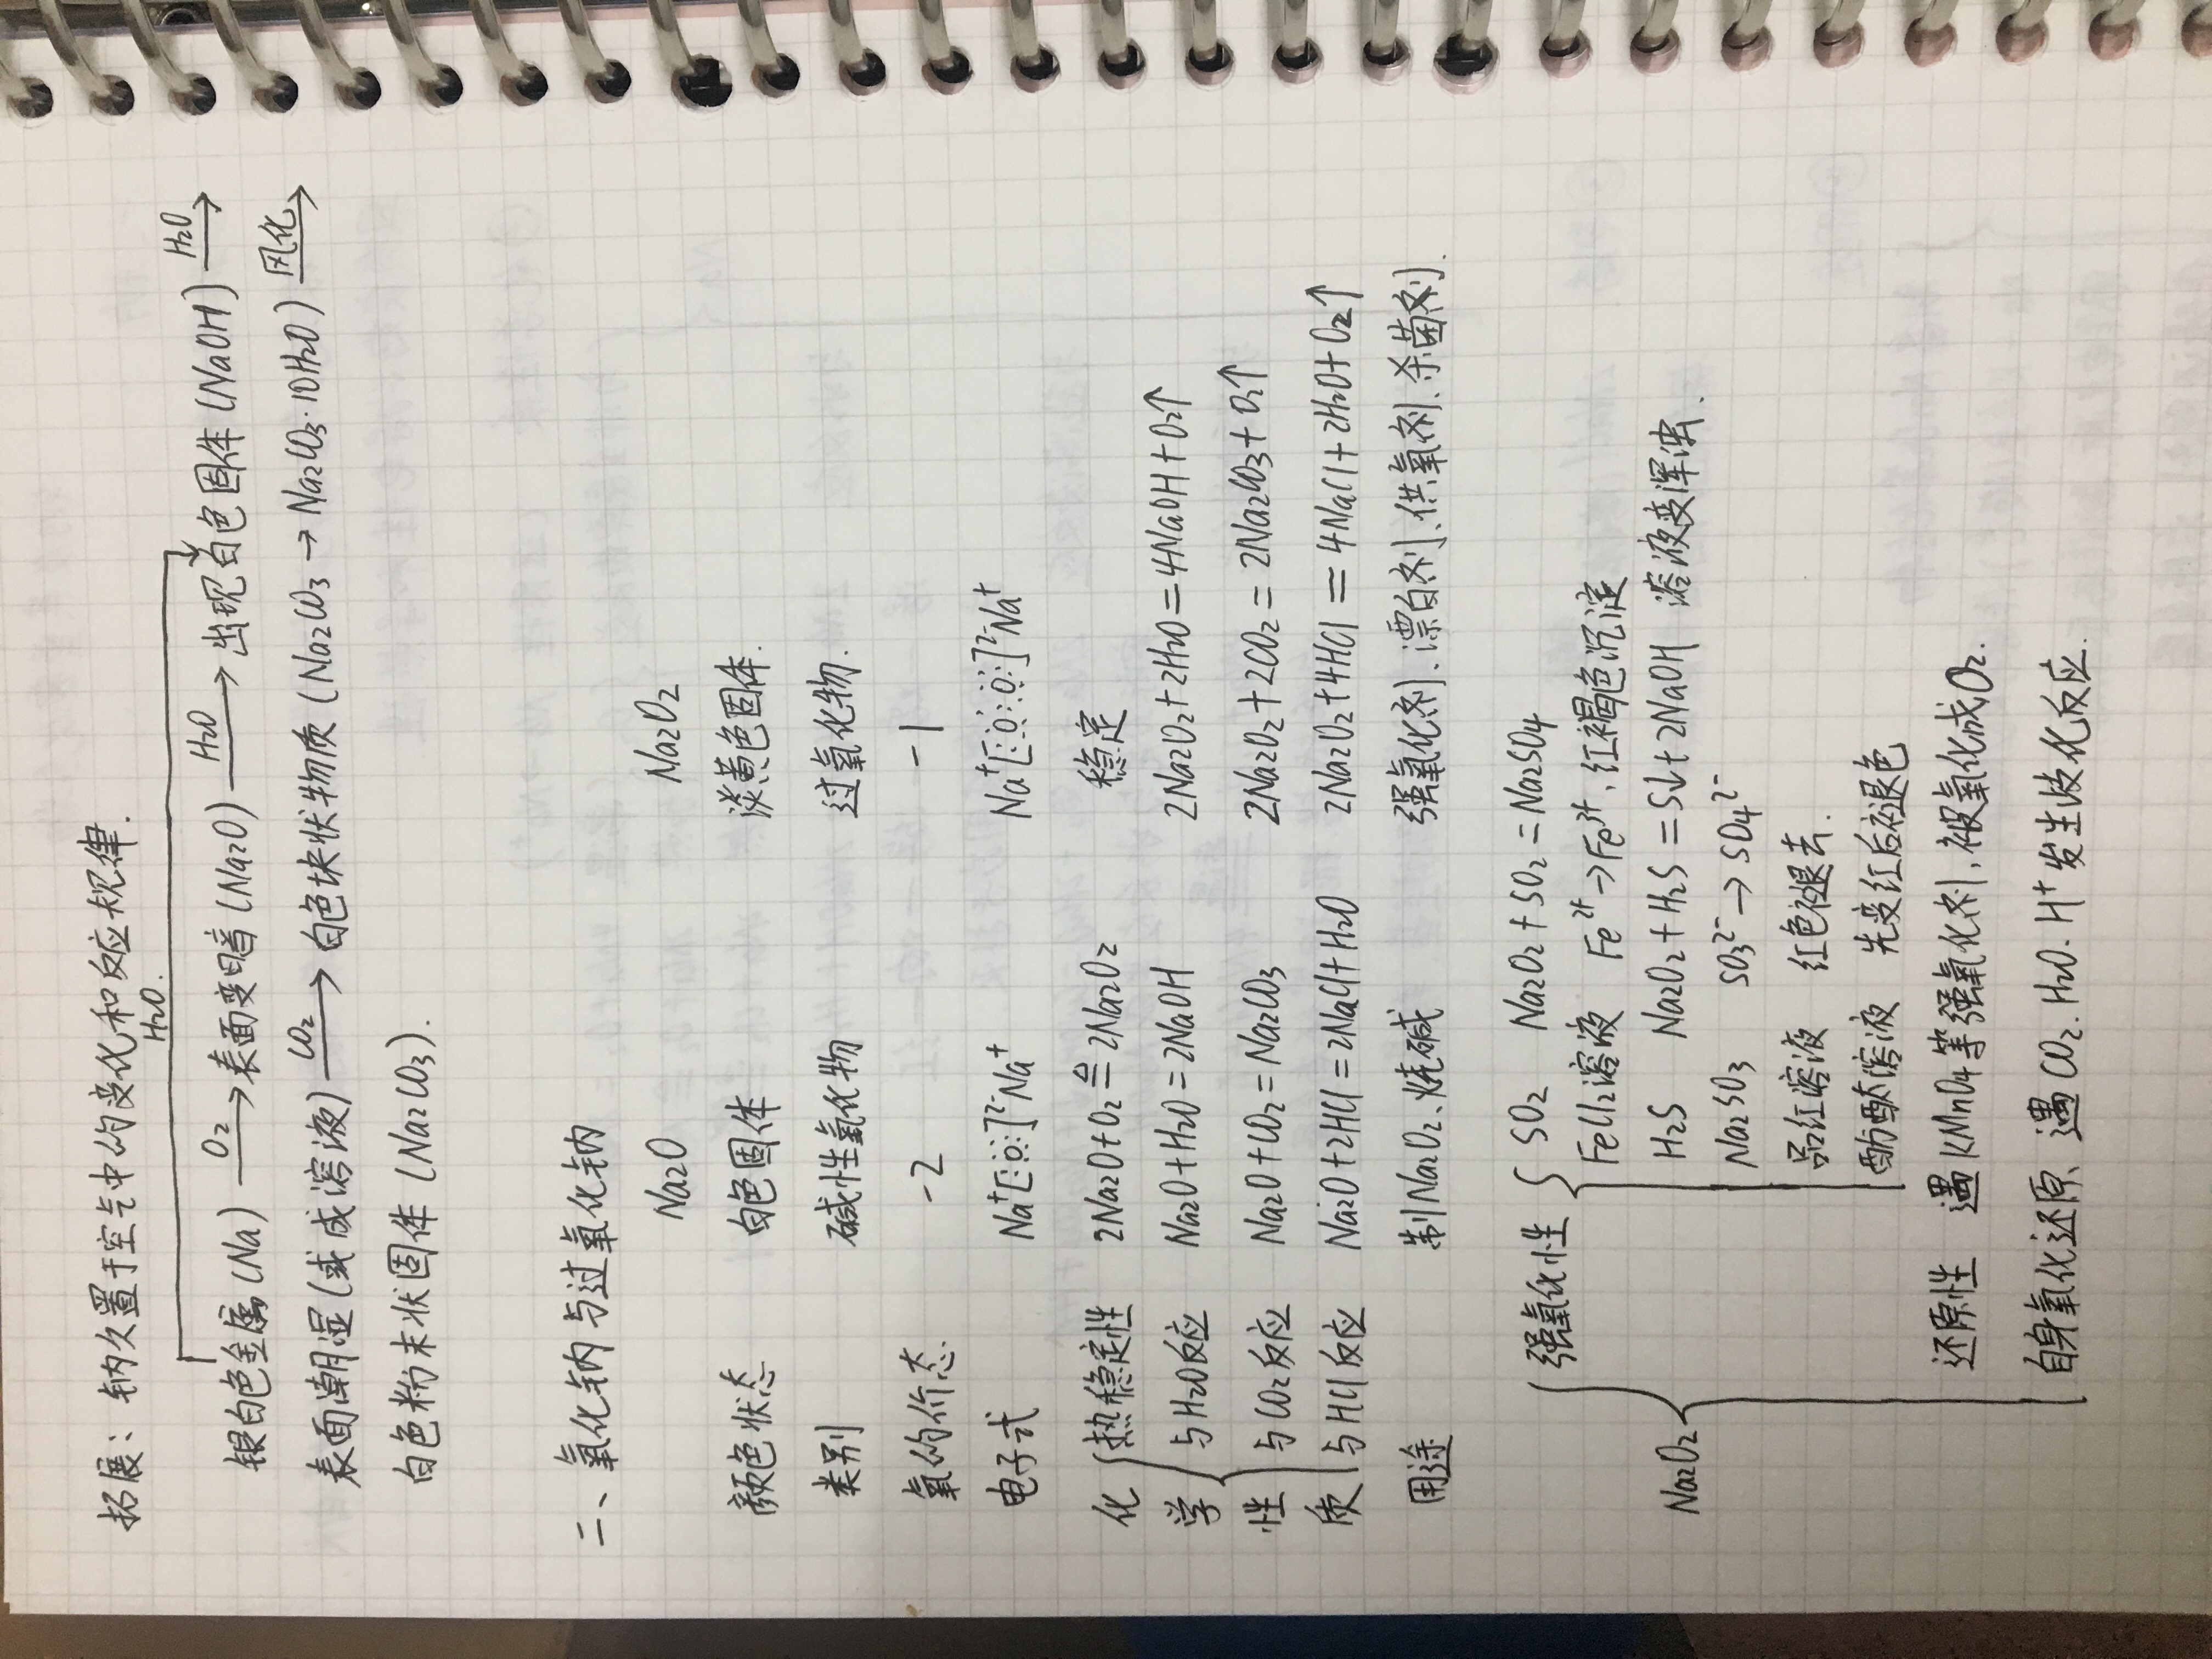 拓展：钠久置于空气中的变化和反应规律.
H₂O.
银白色金属(Na) —O₂→ 表面变暗(Na₂O) —H₂O→ 出现白色固体(NaOH) —H₂O→
表面潮湿(或成溶液) —CO₂→ 白色块状物质(Na₂CO₃→Na₂CO₃·10H₂O) —风化→
白色粉末状固体(Na₂CO₃).
二、氧化钠与过氧化钠
Na₂O Na₂O₂
颜色状态 白色固体 淡黄色固体.
类别 碱性氧化物 过氧化物.
氧的价态 -2 -1
电子式 Na⁺[:Ö:]²⁻Na⁺ Na⁺[:Ö:Ö:]²⁻Na⁺
化学性质 热稳定性 2Na₂O+O₂ ≜ 2Na₂O₂ 稳定
与H₂O反应 Na₂O+H₂O=2NaOH 2Na₂O₂+2H₂O=4NaOH+O₂↑
与CO₂反应 Na₂O+CO₂=Na₂CO₃ 2Na₂O₂+2CO₂=2Na₂CO₃+O₂↑
与HCl反应 Na₂O+2HCl=2NaCl+H₂O 2Na₂O₂+4HCl=4NaCl+2H₂O+O₂↑
用途 制Na₂O₂、烧碱 强氧化剂、漂白剂、供氧剂、杀菌剂.
Na₂O₂ 强氧化性 SO₂ Na₂O₂+SO₂=Na₂SO₄
FeCl₂溶液 Fe²⁺→Fe³⁺，红褐色沉淀
H₂S Na₂O₂+H₂S=S↓+2NaOH 溶液变浑浊.
Na₂SO₃ SO₃²⁻→SO₄²⁻
品红溶液 红色褪去.
酚酞溶液 先变红后褪色
还原性 遇KMnO₄等强氧化剂，被氧化成O₂.
自身氧化还原、遇CO₂.H₂O.H⁺发生歧化反应.